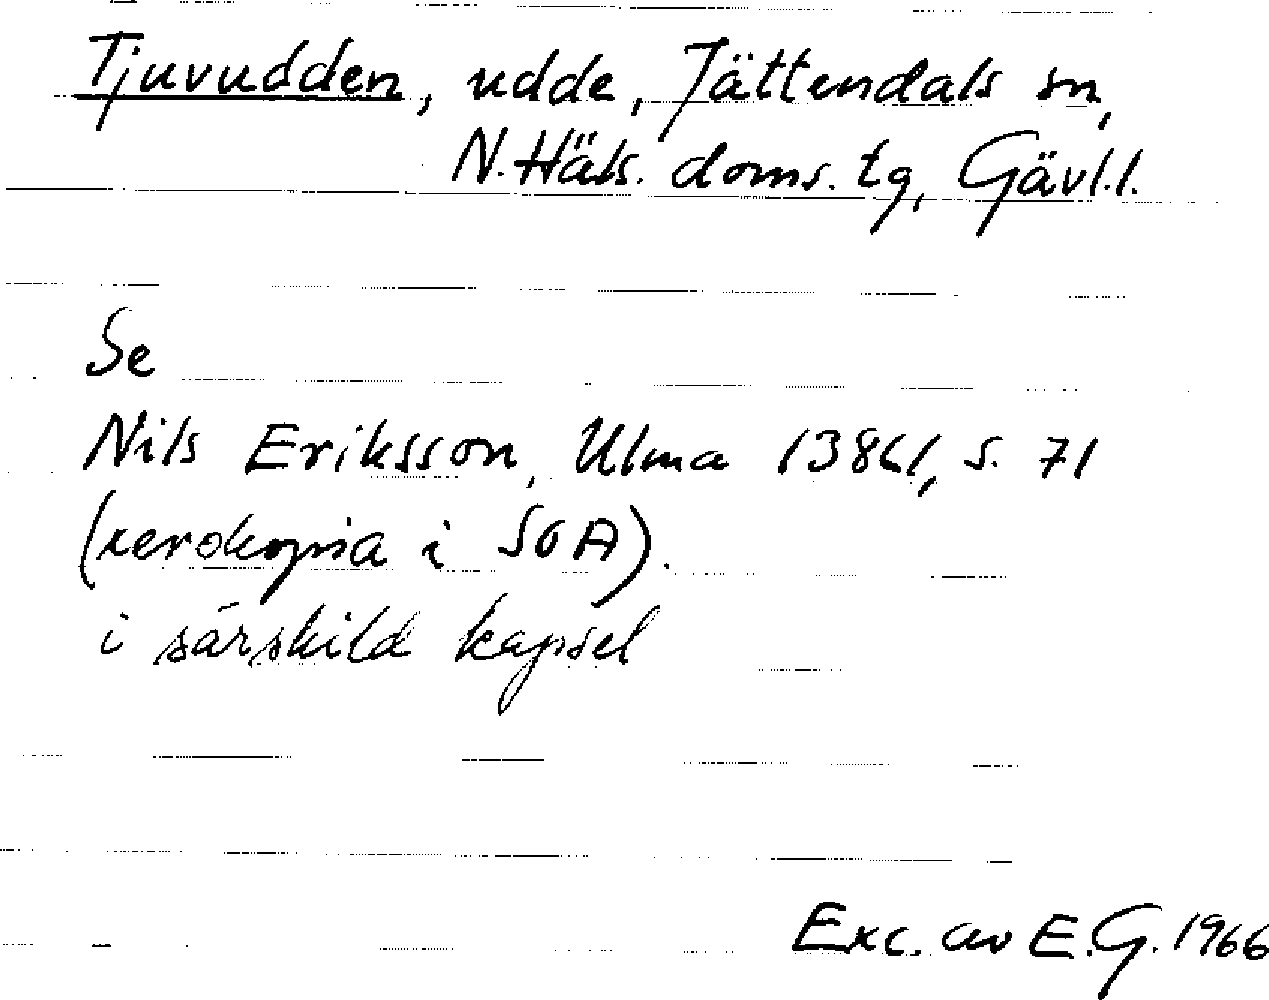 Tjuvudden, udde, Jättendals sn,
N. Häls. doms. tg, Gävl.l.
Se
Nils Eriksson, Ulma 13861, s. 71
(xerokopia i SOA).
i särskild kapsel
Exc. av E.G. 1966